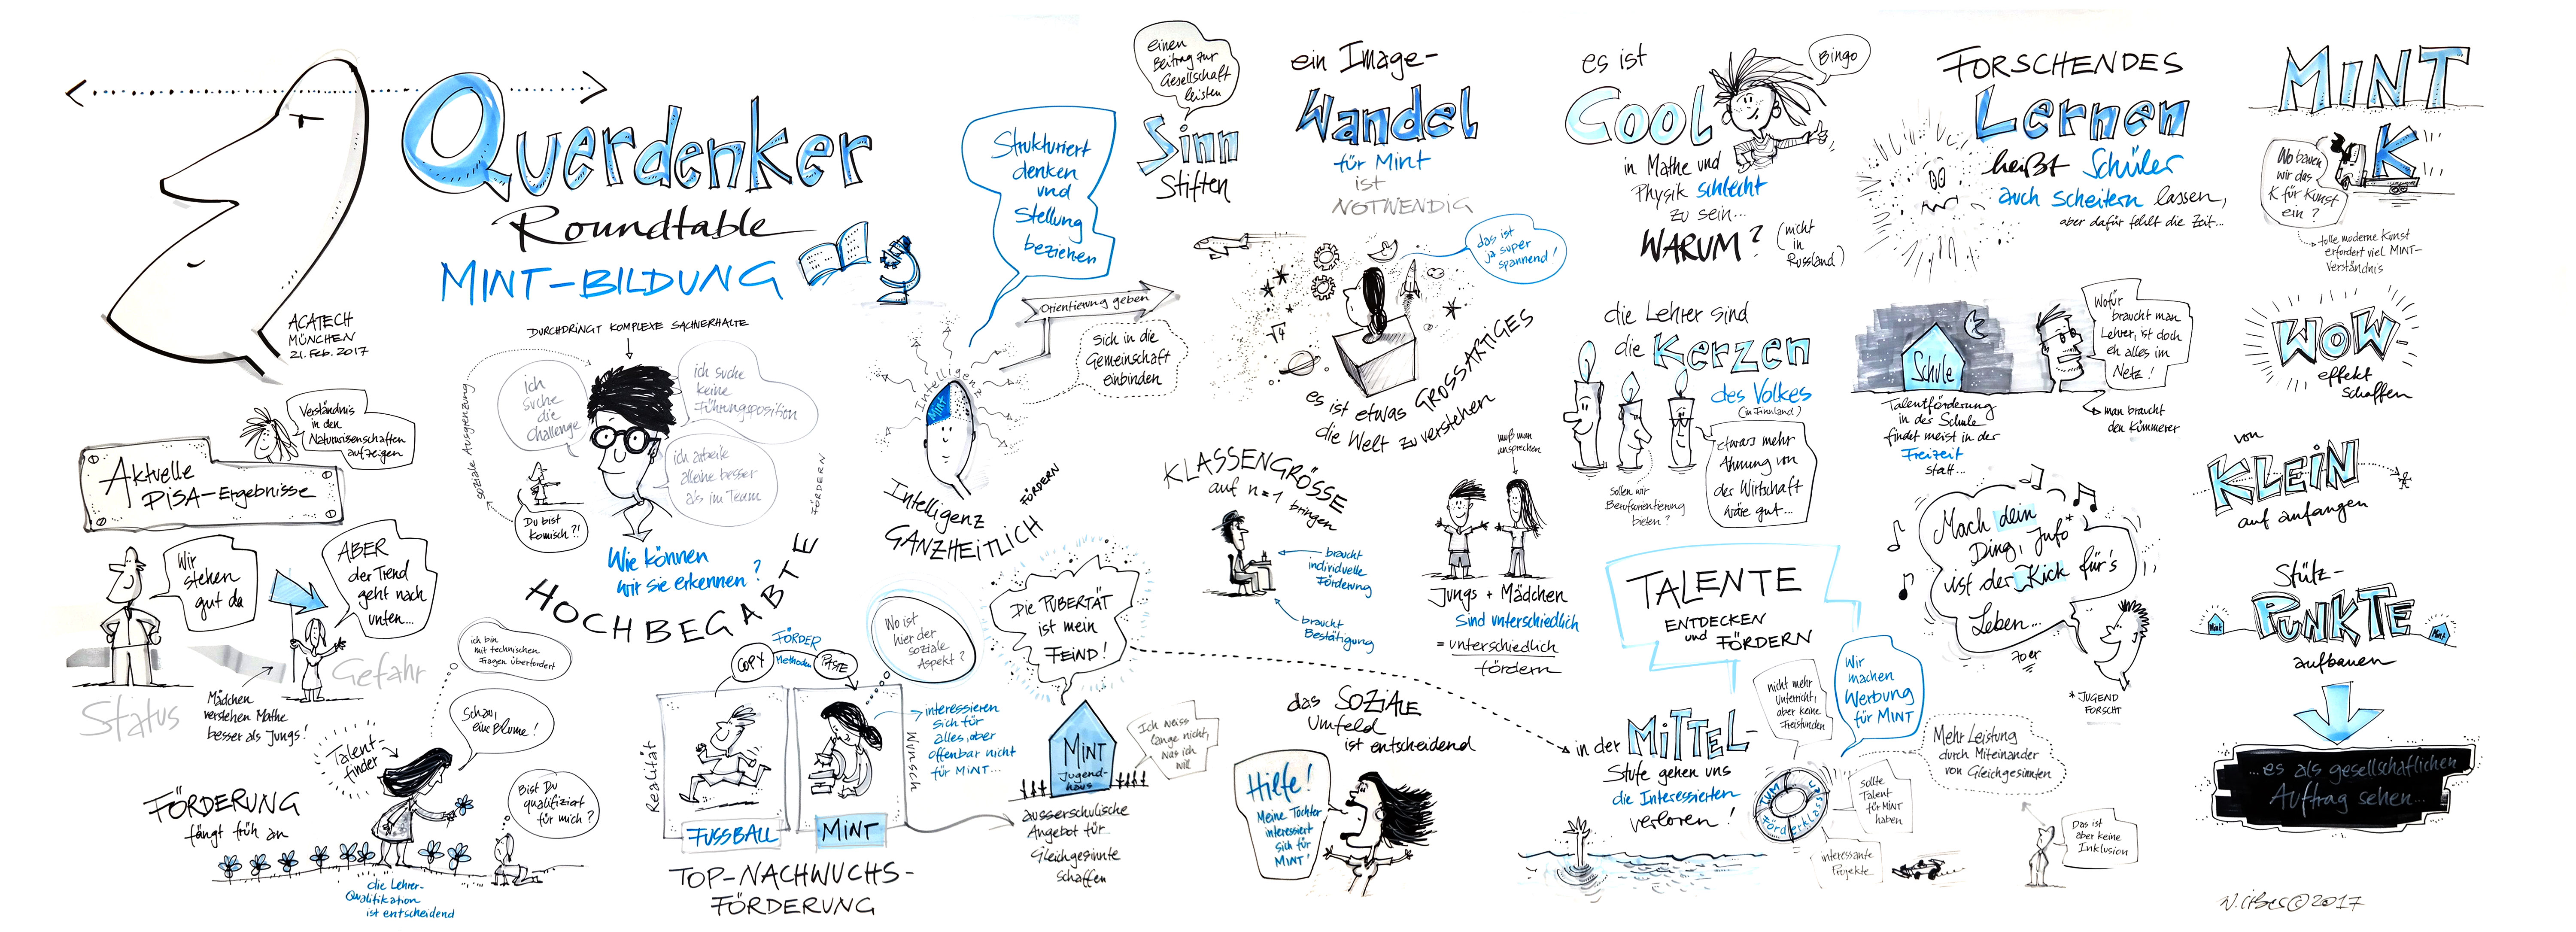 Querdenker
Roundtable
MINT-BILDUNG
ACATECH
MÜNCHEN
21. Feb. 2017
Verständnis
in den
Naturwissenschaften
aufzeigen
Aktuelle
PISA-Ergebnisse
Wir
stehen
gut da
ABER
der Trend
geht nach
unten...
Status
Gefahr
Mädchen
verstehen Mathe
besser als Jungs!
Talent-
finder
ich bin
mit technischen
Fragen überfordert
Schau,
eine Blume!
Bist Du
qualifiziert
für mich?
FÖRDERUNG
fängt früh an
die Lehrer-
Qualifikation
ist entscheidend
DURCHDRINGT KOMPLEXE SACHVERHALTE
soziale Ausgrenzung
ich
suche
die
Challenge
ich suche
keine
Führungsposition
ich arbeite
alleine besser
als im Team
Du bist
komisch?!
Wie können
wir sie erkennen?
HOCHBEGABTE
FÖRDERN
FÖRDER
Methoden
COPY
PASTE
Wo ist
hier der
soziale
Aspekt?
Realität
Wunsch
FUSSBALL
MINT
interessieren
sich für
alles, aber
offenbar nicht
für MINT...
TOP-NACHWUCHS-
FÖRDERUNG
Strukturiert
denken
und
Stellung
beziehen
Orientierung geben
Sich in die
Gemeinschaft
einbinden
Intelligenz
MINT
Intelligenz
GANZHEITLICH
FÖRDERN
Die PUBERTÄT
ist mein
FEIND!
MINT
Jugend-
haus
Ich weiss
lange nicht,
was ich
will
ausserschulische
Angebot für
Gleichgesinnte
schaffen
einen
Beitrag zur
Gesellschaft
leisten
Sinn
Stiften
ein Image-
Wandel
für Mint
ist
NOTWENDIG
das ist
ja super
spannend!
es ist etwas GROSSARTIGES
die Welt zu verstehen
KLASSENGRÖSSE
auf n=1
bringen
braucht
individuelle
Förderung
braucht
Bestätigung
muß man
ansprechen
Jungs + Mädchen
Sind unterschiedlich
= unterschiedlich
fördern
das SOZIALE
Umfeld
ist entscheidend
Hilfe!
Meine Tochter
interessiert
sich für
MINT!
es ist
Cool
in Mathe und
Physik schlecht
zu sein...
WARUM?
(nicht
in
Russland)
Bingo
die Lehrer sind
die Kerzen
des Volkes
(in Finnland)
etwas mehr
Ahnung von
der Wirtschaft
wäre gut...
sollen wir
Berufsorientierung
bieten?
TALENTE
ENTDECKEN
und FÖRDERN
nicht mehr
Unterricht,
aber keine
Freistunden
Wir
machen
Werbung
für MINT
in der MITTEL-
Stufe gehen uns
die Interessierten
verloren!
TUM
Förderklassen
sollte
Talent
für MINT
haben
interessante
Projekte
Mehr Leistung
durch Miteinander
von Gleichgesinnten
Das ist
aber keine
Inklusion
FORSCHENDES
Lernen
heißt Schüler
auch scheitern lassen,
aber dafür fehlt die Zeit...
Schule
Talentförderung
in der Schule
findet meist in der
Freizeit
statt...
Wofür
braucht man
Lehrer, ist doch
eh alles im
Netz!
man braucht
den Kümmerer
Mach dein
Ding, Jufo*
ist der Kick für's
Leben...
70er
* JUGEND
FORSCHT
MINT
K
Wo bauen
wir das
K für Kunst
ein?
tolle moderne Kunst
erfordert viel MINT-
Verständnis
WOW-
effekt
schaffen
von
KLEIN
auf anfangen
Stütz-
PUNKTE
Mint
Mint
aufbauen
...es als gesellschaftlichen
Auftrag sehen...
©2017